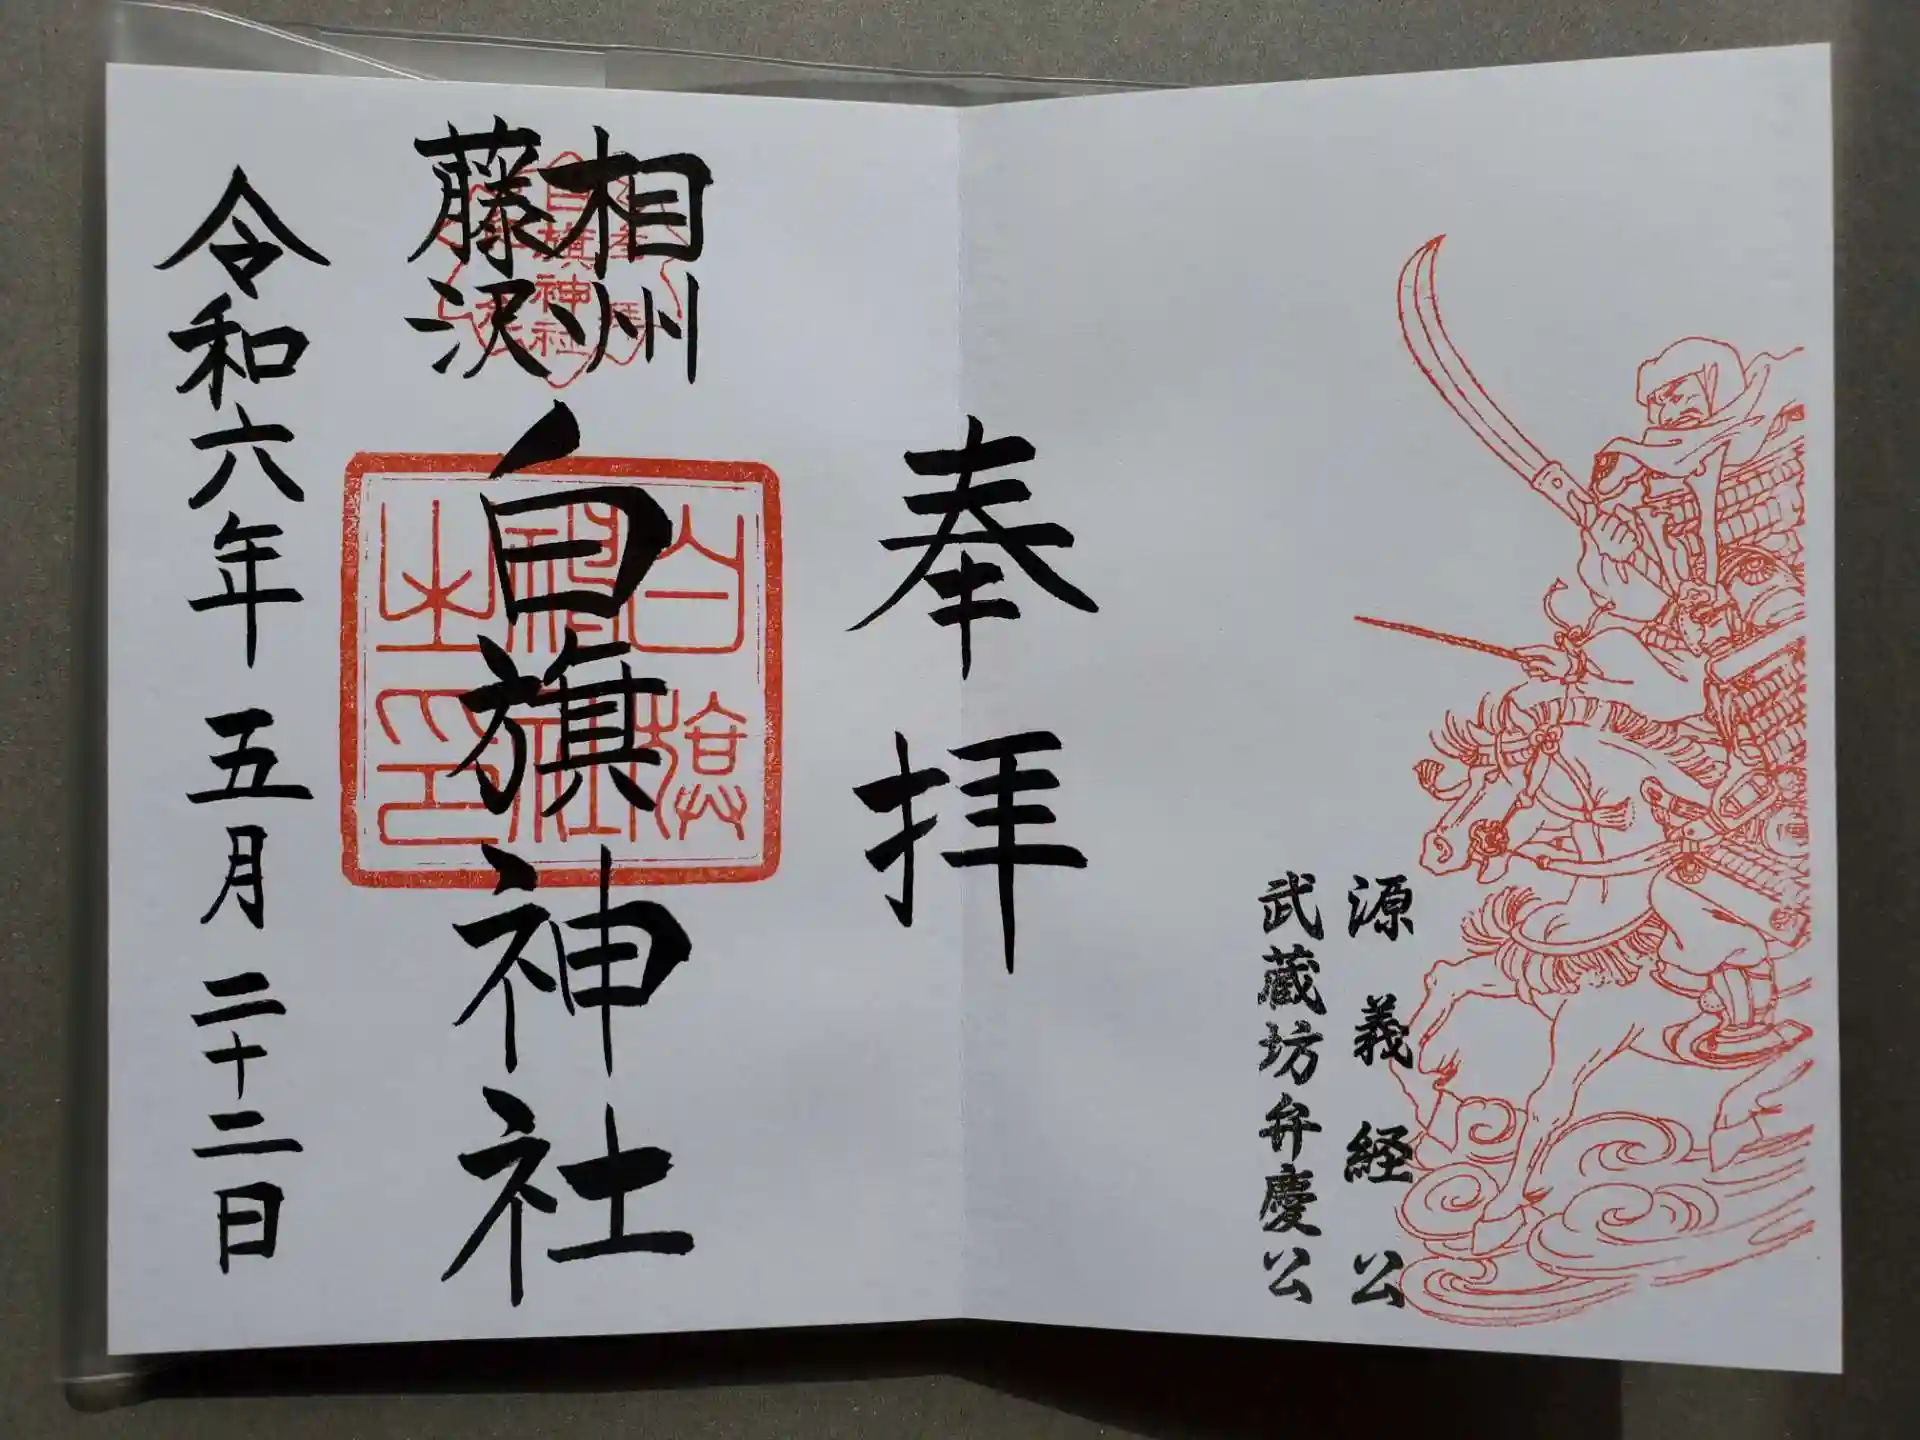 源義経公
武蔵坊弁慶公
奉拝
相州
藤沢
白旗神社
白旗
神社
之印
白旗神社
令和六年五月二十二日